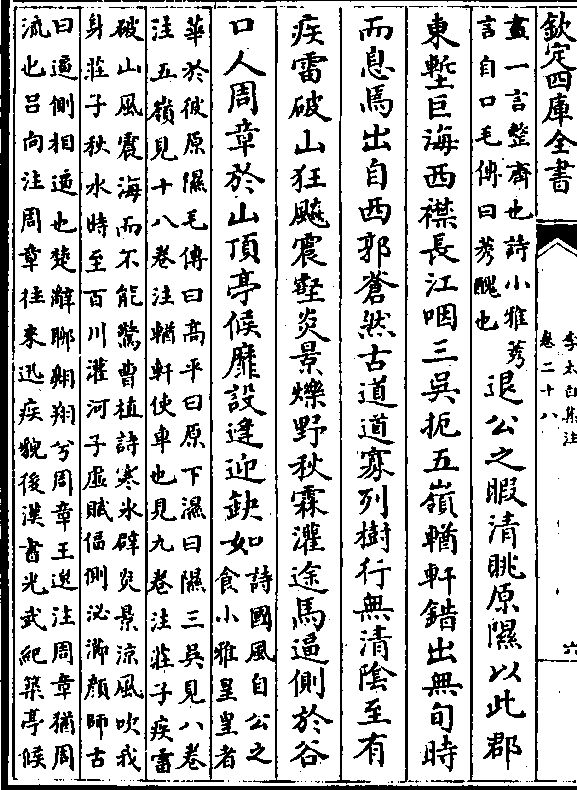 欽定四庫全書
李太白集注
卷二十八
六
畫一言整齊也詩小雅莠
言自口毛傳曰莠醜也
退公之暇清眺原隰以此郡
東塹巨海西襟長江咽三吳扼五嶺輶軒錯出無旬時
而息焉出自西郭蒼然古道道寡列樹行無清陰至有
疾雷破山狂飈震壑炎景爍野秋霖灌途馬逼側於谷
口人周章於山頂亭候靡設逢迎缺如
詩國風自公之
食小雅皇皇者
華於彼原隰毛傳曰高平曰原下濕曰隰三吳見八卷
注五嶺見十八卷注輶軒使車也見九卷注莊子疾雷
破山風震海而不能驚曹植詩寒氷辟炎景凉風吹我
身莊子秋水時至百川灌河子虛賦偪側泌瀄顔師古
曰逼側相逼也楚辭聊翱翔兮周章王逸注周章猶周
流也吕向注周章往来迅疾貌後漢書光武紀築亭候